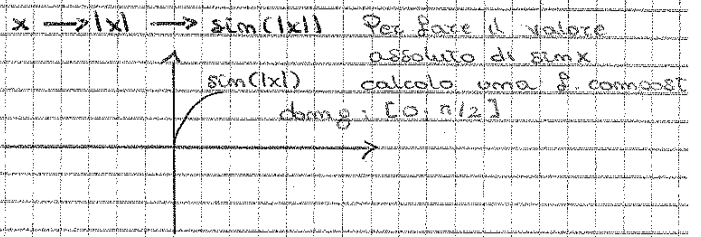 x → |x| → sin(|x|)
Per fare il valore
assoluto di sinx
sin(|x|)
calcolo una f. compost
dom g: [0; π/2]